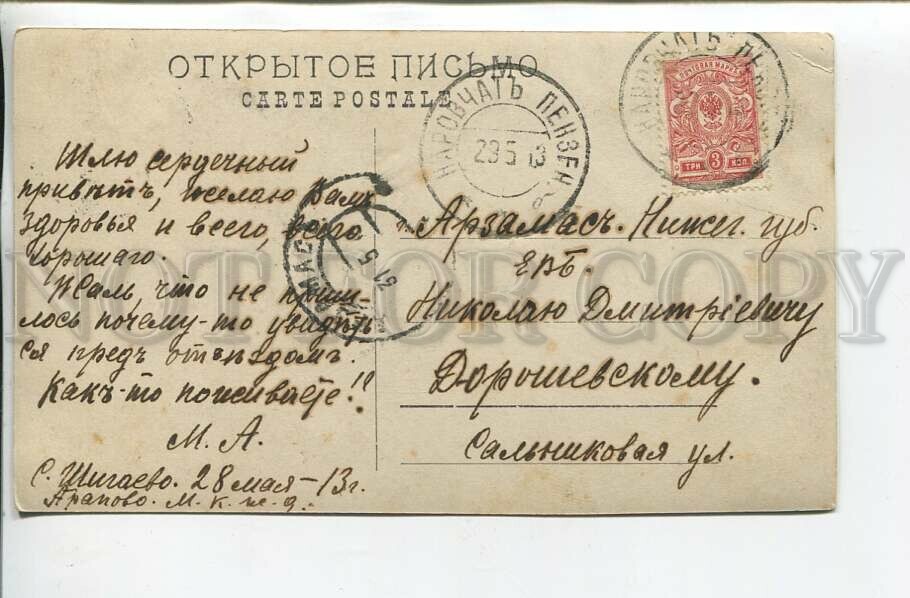 ОТКРЫТОЕ ПИСЬМО
CARTE POSTALE
НАРОВЧАТЪ ПЕНЗЕН
29 5 13
НАРОВЧАТЪ
ПОЧТОВАЯ МАРКА
ТРИ 3 КОП.
31 5
Шлю сердечный
привѣтъ, желаю Вамъ
здоровья и всего, всего
хорошаго.
Жаль, что не приш-
лось почему-то увидѣть
ся предъ отъѣздомъ.
Какъ-то поживаете!?
М. А.
С. Шигаево. 28 мая-13 г.
Арапово. М. К. ж. д.
г. Арзамасъ. Нижег. губ.
ЕВБ.
Николаю Дмитріевичу
Дорошевскому.
Сальниковая ул.
NOT FOR COPY